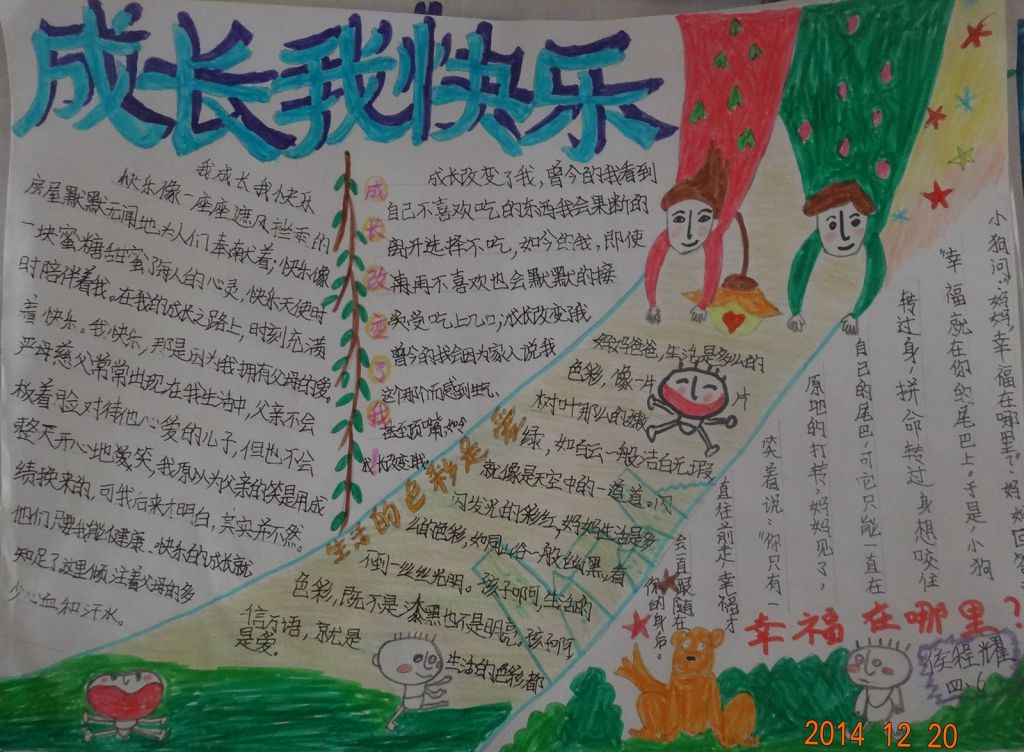 成长我快乐
我成长我快乐
快乐像一座座遮风挡雨的
房屋默默无闻地为人们奉献着;快乐像
一块蜜糖甜蜜了每人的心灵,快乐天使时
时陪伴着我。在我的成长之路上,时刻充满
着快乐。我快乐,那是因为我拥有父母的爱。
严母慈父常常出现在我生活中,父亲不会
板着脸对待他心爱的儿子,但也不会
整天开心地傻笑,我原以为父亲的笑是用成
绩换来的,可我后来才明白,其实并不然。
他们只要我能健康、快乐的成长就
知足了这里倾注着父母的多
少心血和汗水。
成长改变了我
成长改变了我,曾今的我看到
自己不喜欢吃的东西我会果断的
离开选择不吃,如今的我,即使
再不喜欢也会默默的接
受吃上几口,成长改变了我
曾今的我会因为家人说我
这个那个而感到生气,
成长改变我
生活的色彩是
妈妈爸爸,生活是多么的
色彩,像一片片
树叶那么的嫩
绿,如白云一般洁白无瑕
就像是天空中的一道道闪
闪发光的彩红,妈妈生活是多
么的色彩,如同山谷一般幽黑,看
不倒一丝丝光明。孩子啊,生活的
色彩,既不是漆黑也不是明亮。孩子啊
生活的色彩,都
是爱。
幸福在哪里?
小狗问:"妈妈,幸福在哪里?"妈妈回答:
"幸福就在你的尾巴上。于是小狗
转过身,拼命转过身想咬住
自己的尾巴,可它只能一直在
原地的打转,妈妈见了,
笑着说:"你只有一
直往前走幸福才
会一直跟随在
你的身后。
侯程耀
四、6
2014 12 20